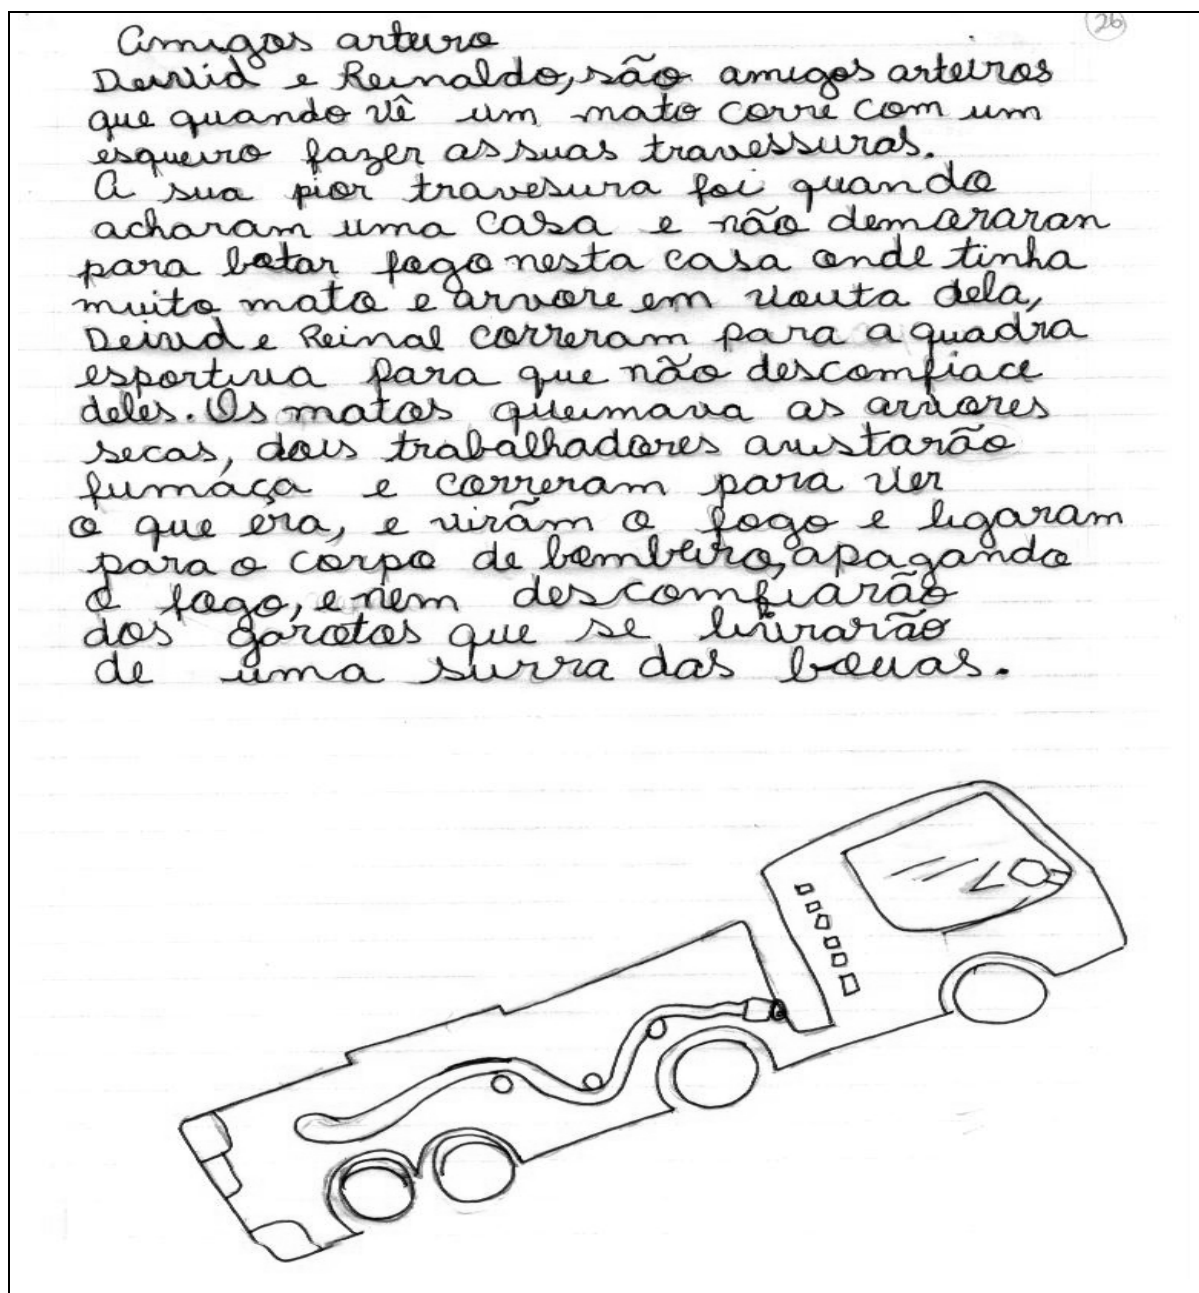 26
Amigos arteiro
Deivid e Reinaldo, são amigos arteiros
que quando vê um mato corre com um
esqueiro fazer as suas travessuras.
A sua pior travesura foi quando
acharam uma casa e não demoraran
para botar fogo nesta casa onde tinha
muito mato e arvore em vouta dela,
Deivd e Reinal correram para a quadra
esportiva para que não descomfiace
deles. Os matos queimava as arvores
secas, dois trabalhadores avistarão
fumaça e correram para ver
o que éra, e virãm o fogo e ligaram
para o corpo de bombeiro, apagando
o fogo, e nem descomfiarão
dos garotos que se livrarão
de uma surra das bouas.